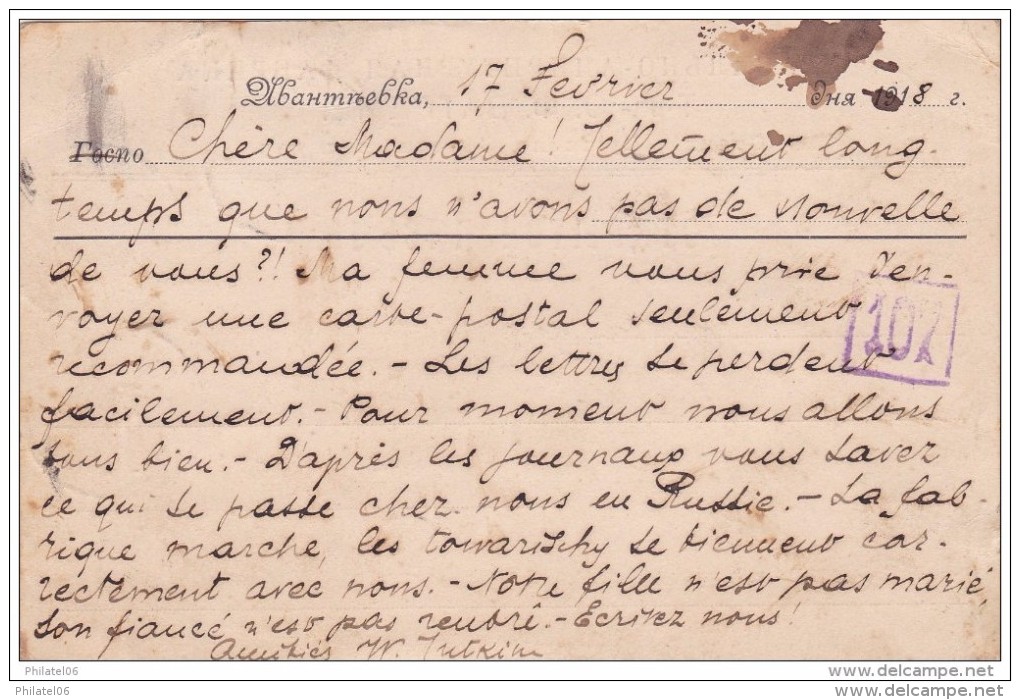 Авантѣевка, 17 Fevrier дня 1918 г.
Госпо Chère Madame! Tellement long-
temps que nous n'avons pas de nouvelle
de vous?! Ma femme vous prie d'en-
voyer une carte-postal seulement
recommandée. - Les lettres se perdent
107
facilement. - Pour moment nous allons
tous bien. - D'après les journaux vous savez
ce qui se passe chez nous en Russie. - La fab-
rique marche, les towarischy se tiennent cor-
rectement avec nous. - Notre fille n'est pas marié,
son fiancé n'est pas rentrê. - Ecrivez nous!
Amitiés W.
Philatel06
Philatel06
delcampe.net
delcampe.net